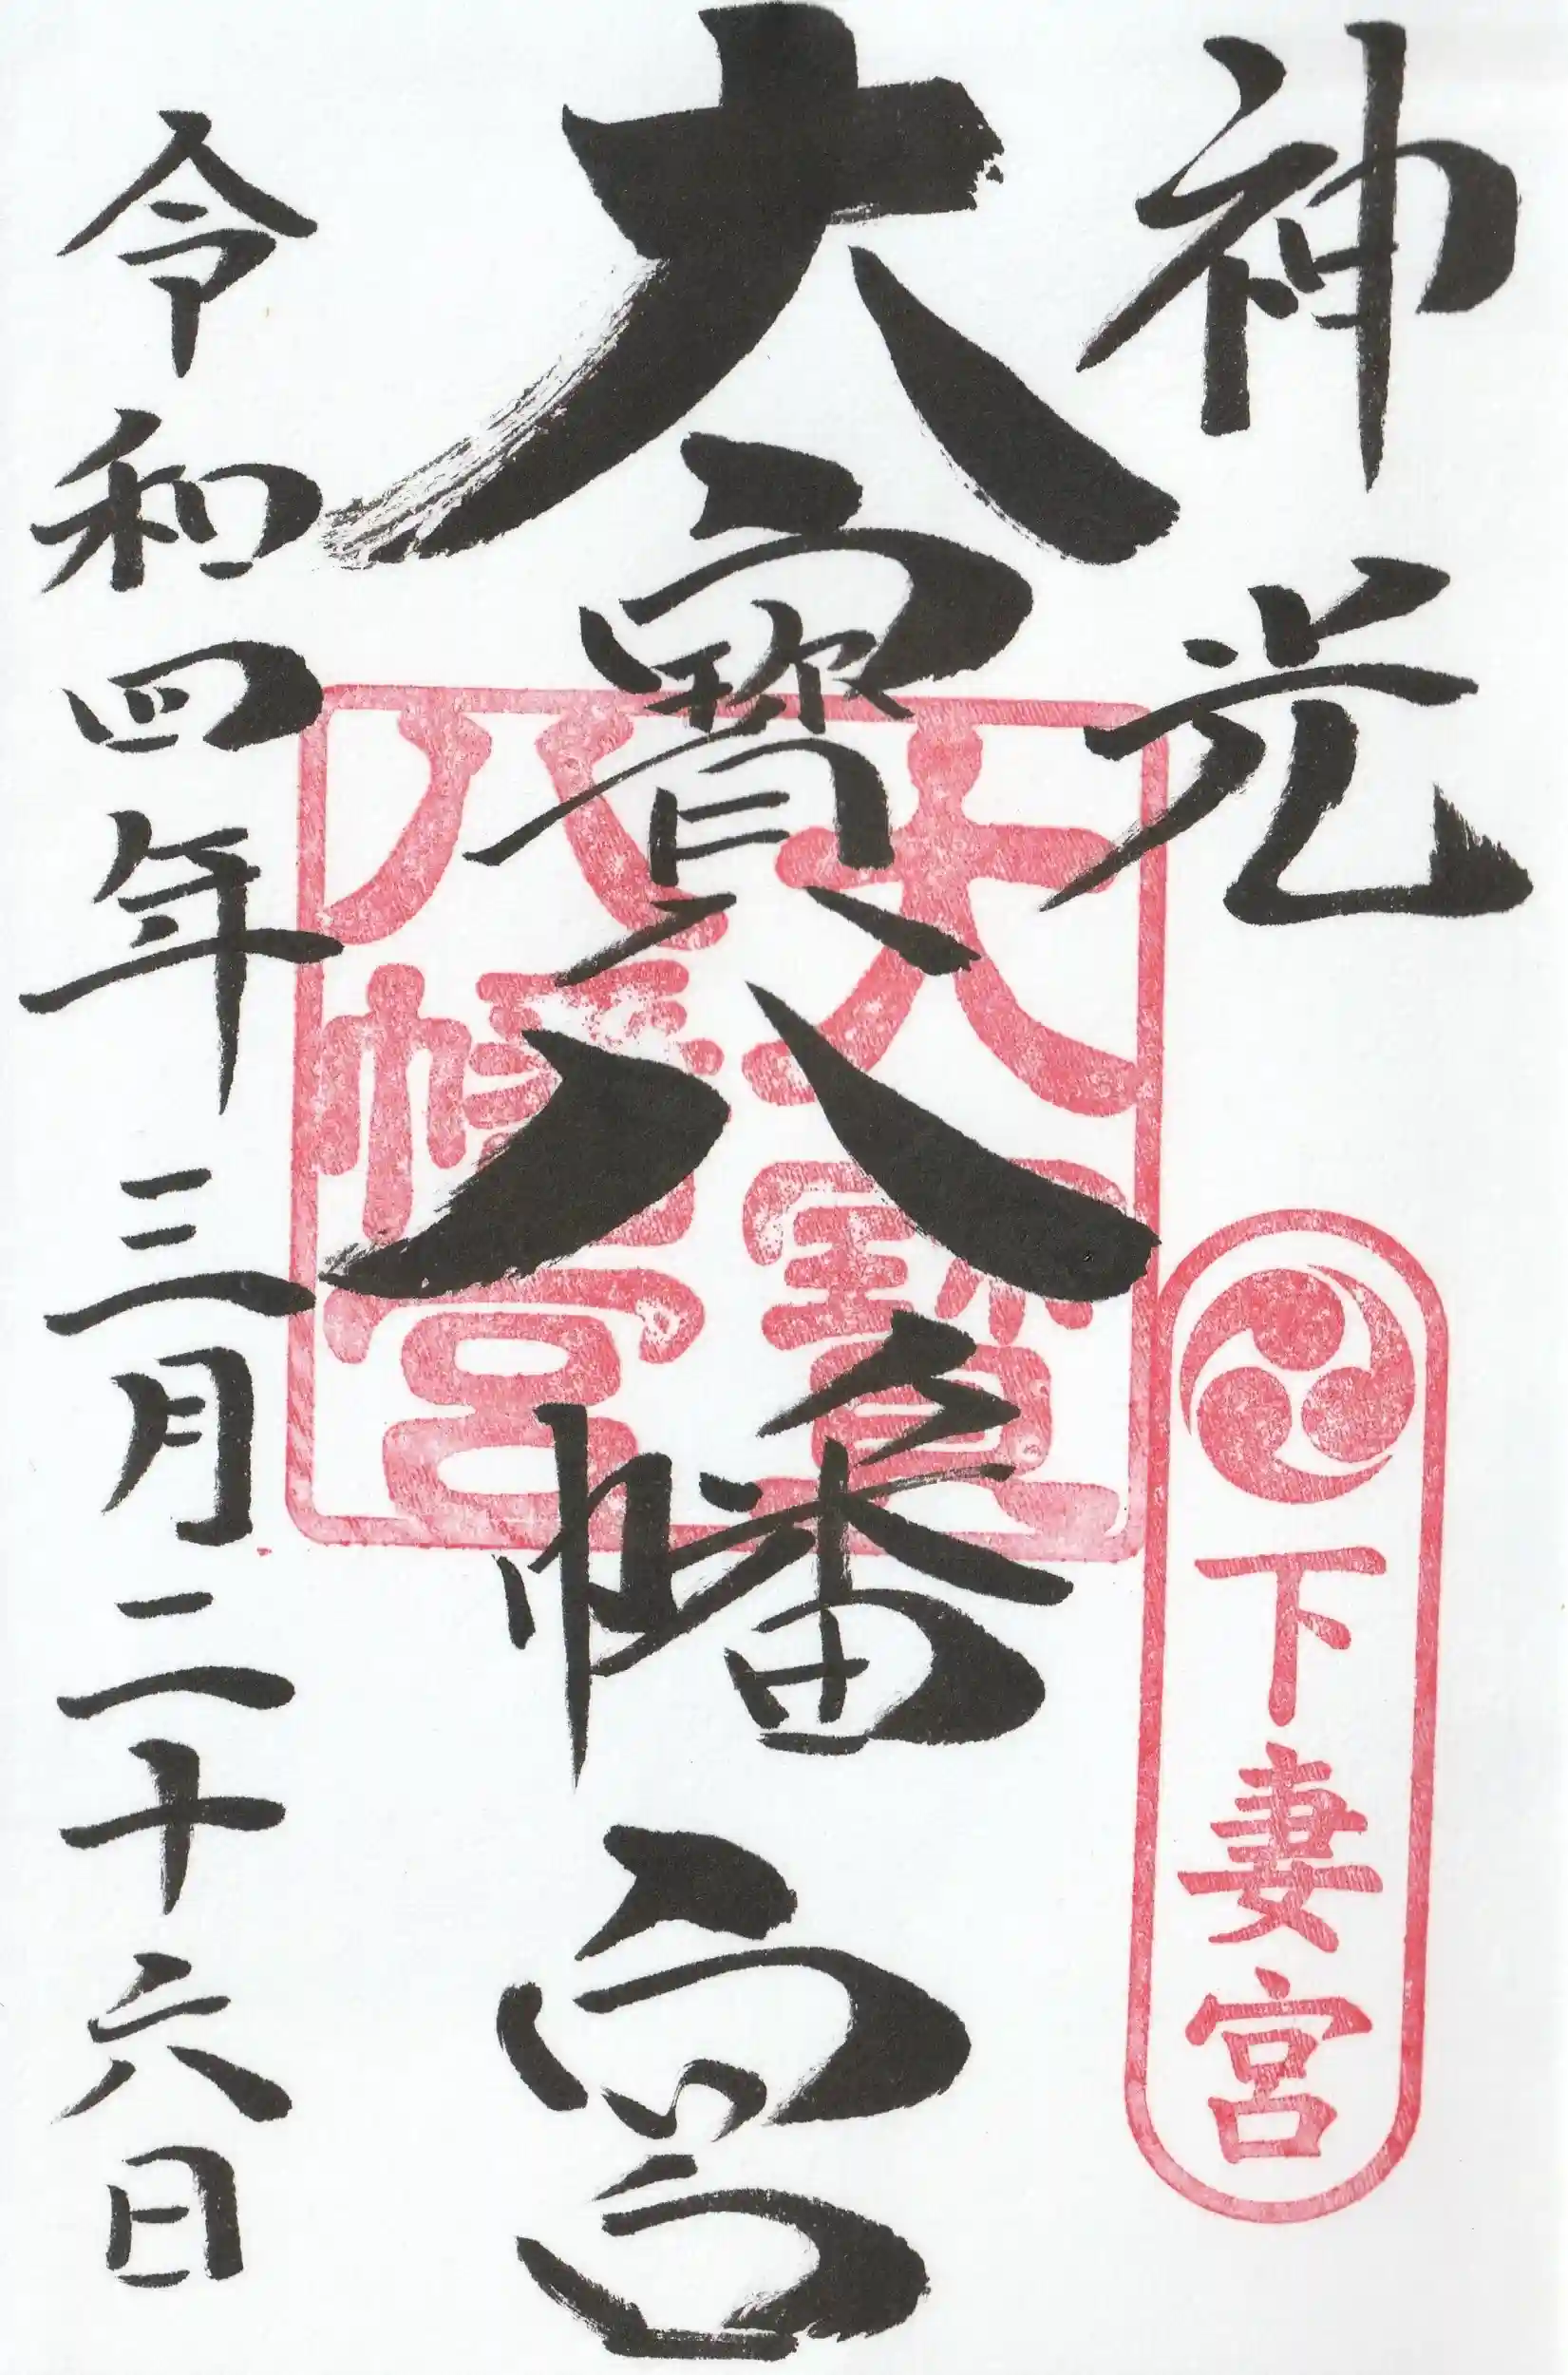 神光
下妻宮
大寶八幡宮
大寶
八幡宮
令和四年三月二十六日